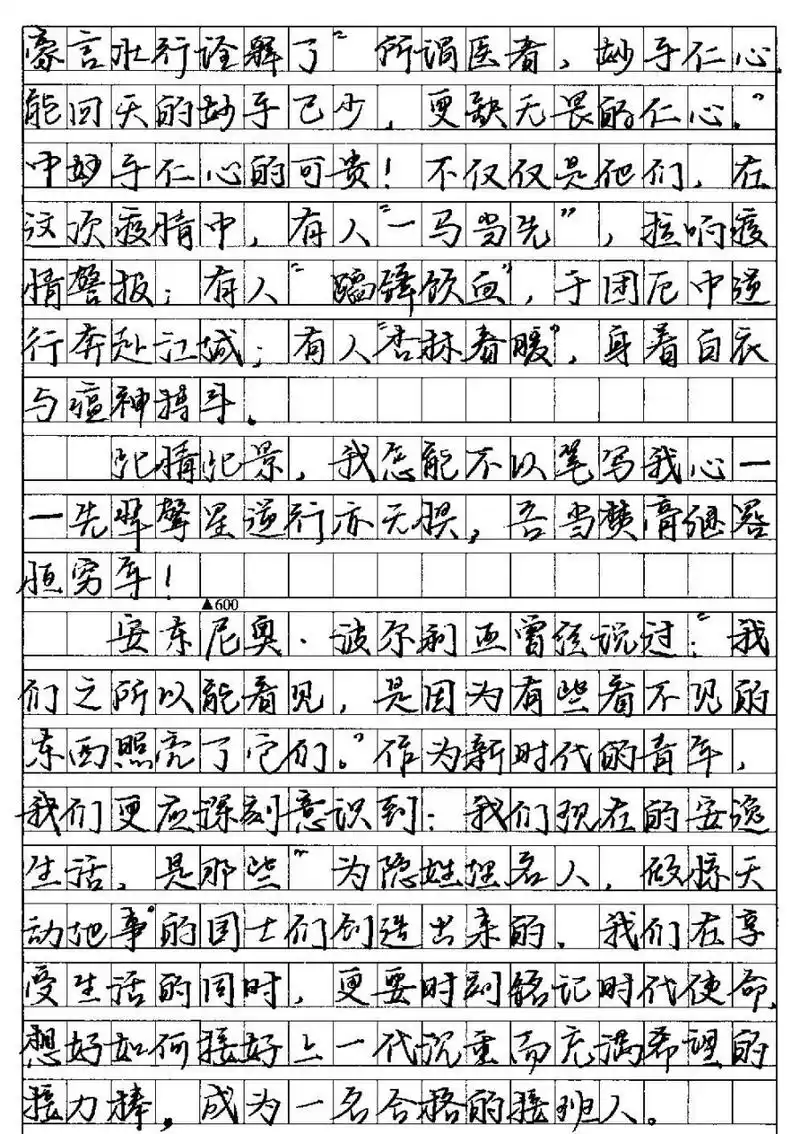 豪言壮行诠释了“所谓医者，妙手仁心，
能回天的妙手已少，更缺无畏的仁心。”
中妙手仁心的可贵！不仅仅是他们，在
这次疫情中，有人“一马当先”，拉响疫
情警报；有人“蹈锋饮血”，于困厄中逆
行奔赴江城；有人“杏林春暖”，身着白衣
与瘟神搏斗。
此情此景，我怎能不以笔写我心—
—先辈擎星逆行亦无惧，吾当焚膏继晷
恒穷年！
▲600
安东尼奥·波尔利亚曾经说过：“我
们之所以能看见，是因为有些看不见的
东西照亮了它们。”作为新时代的青年，
我们更应深刻意识到：我们现在的安逸
生活，是那些“为隐姓埋名人，做惊天
动地事”的国士们创造出来的。我们在享
受生活的同时，更要时刻铭记时代使命，
想好如何接好上一代沉重而充满希望的
接力棒，成为一名合格的接班人。